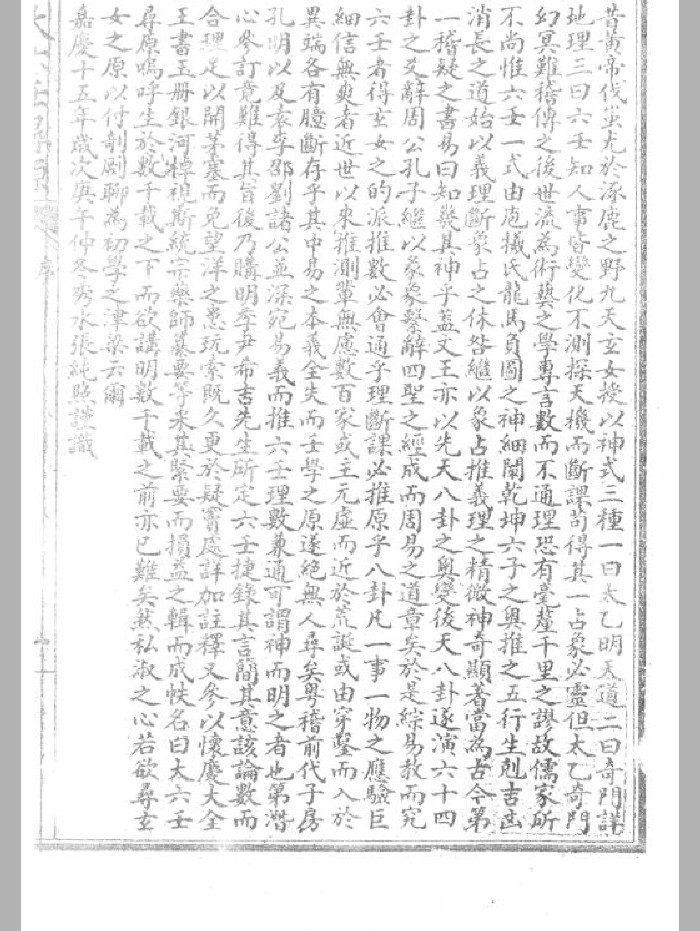 昔黃帝伐蚩尤於涿鹿之野九天玄女授以神式三種一曰太乙明天道二曰奇門詳
地理三曰六壬知人事皆變化不測探天機而斷課苟得其一占象必靈但太乙奇門
幻冥難稽傳之後世流為術藝之學專言數而不通理恐有毫釐千里之謬故儒家所
不尚惟六壬一式由庖犧氏龍馬負圖之神細闡乾坤六子之奧推之五行生剋吉凶
消長之道始以義理斷象占之休咎繼以象占推義理之精微神奇顯著當為古今第
一稽疑之書易曰知幾其神乎蓋文王亦以先天八卦之奧變後天八卦遂演六十四
卦之爻辭周公孔子繼以彖象繫辭四聖之經成而周易之道章矣於是綜易教而究
六壬者得玄女之的派推數必會通乎理斷課必推原乎八卦凡一事一物之應驗巨
細信無爽者近世以來推測輩無慮數百家或主元虛而近於荒誕或由穿鑿而入於
異端各有臆斷存乎其中易之本義全失而壬學之原遂絕無人尋矣粵稽前代子房
孔明以及袁李邵劉諸公並深究易義而推六壬理數兼通可謂神而明之者也第潛
心參訂竟難得其旨後乃購明季尹希吉先生所定六壬捷錄其言簡其意該論數而
合理足以開茅塞而免望洋之患玩索既久更於疑竇處詳加註釋又參以懷慶大全
王書玉册銀河棹視斯統宗藥師纂要等采其緊要而損益之輯而成帙名曰大六壬
尋原嗚呼生於數千載之下而欲講明數千載之前亦已難矣然私淑之心若欲尋玄
女之原以付剞劂聊為初學之津梁云爾
嘉慶十五年歲次庚午仲冬秀水張純照謹識